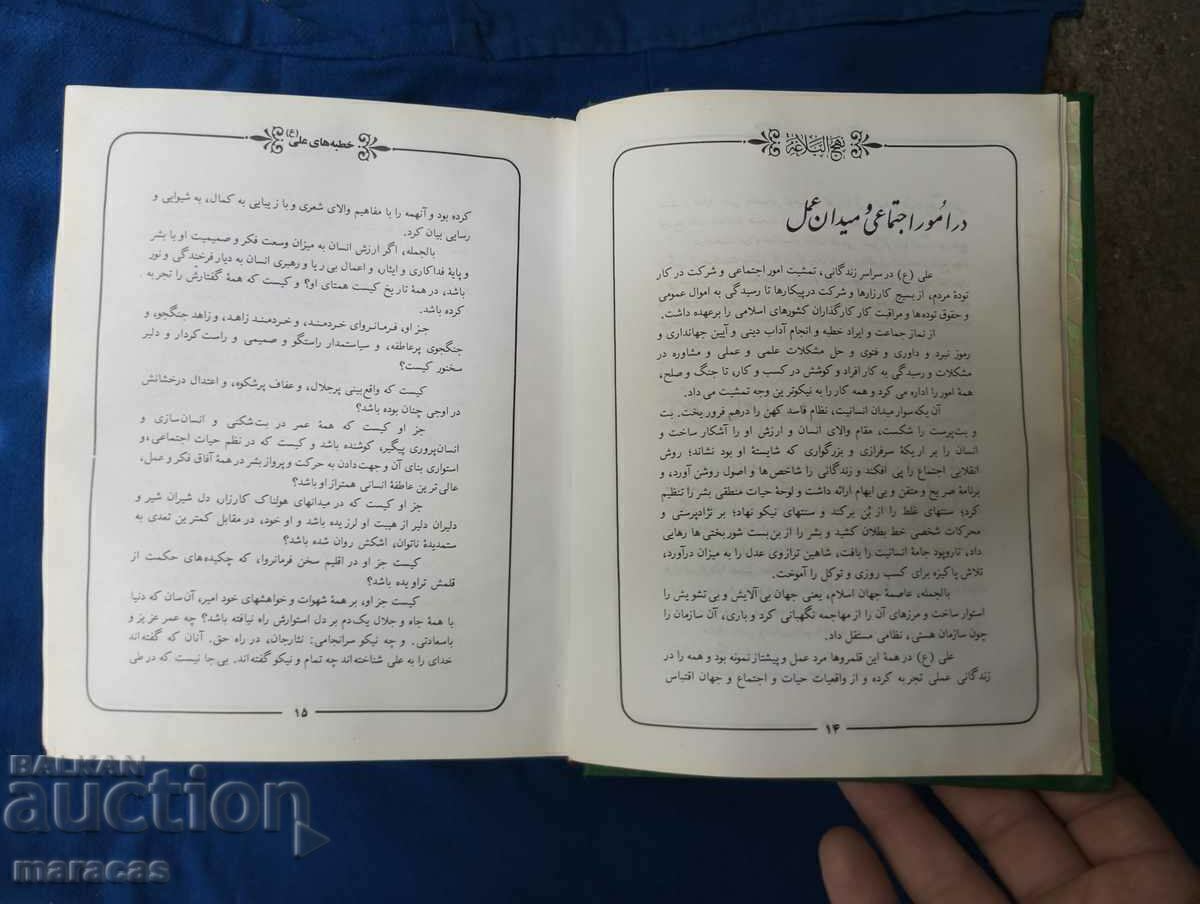 نهج البلاغه
در اُمور اجتماعی و میدان عمل
علی (ع) در سراسر زندگانی، تمشیت امور اجتماعی و شرکت در کار
تودهٔ مردم، از بسیج کارزارها و شرکت در پیکارها تا رسیدگی به اموال عمومی
و حقوق توده‌ها و مراقبت کار کارگذاران کشورهای اسلامی را برعهده داشت.
از نماز جماعت و ایراد خطبه و انجام آداب دینی و آیین جهانداری و
رموز نبرد و داوری و فتوی و حل مشکلات علمی و عملی و مشاوره در
مشکلات و رسیدگی به کار افراد و کوشش در کسب و کار، تا جنگ و صلح،
همهٔ امور را اداره می کرد و همه کار را به نیکوترین وجه تمشیت می داد.
آن یکه سوار میدان انسانیت، نظام فاسد کهن را درهم فرو ریخت. بت
و بت‌پرست را شکست، مقام والای انسان و ارزش او را آشکار ساخت و
انسان را بر اریکهٔ سرفرازی و بزرگواری که شایستهٔ او بود نشاند؛ روش
انقلابی اجتماع را پی افکند و زندگانی را شاخص‌ها و اصول روشن آورد، و
برنامهٔ صریح و متقن و بی ابهام ارائه داشت و لوحهٔ حیات منطقی بشر را تنظیم
کرد؛ سنتهای غلط را از بُن برکند و سنتهای نیکو نهاد؛ بر نژادپرستی و
محرکات شخصی خط بطلان کشید و بشر را از بن‌بست شوربختی ها رهایی
داد، تاروپود جامهٔ انسانیت را بافت، شاهین ترازوی عدل را به میزان درآورد،
تلاش پاکیزه برای کسب روزی و توکل را آموخت.
بالجمله، عاصمهٔ جهان اسلام، یعنی جهان بی آلایش و بی تشویش را
استوار ساخت و مرزهای آن را از مهاجمه نگهبانی کرد و باری، آن سازمان را
چون سازمان هستی، نظامی مستقل داد.
علی (ع) در همهٔ این قلمروها مرد عمل و پیشتاز نمونه بود و همه را در
زندگانی عملی تجربه کرده و از واقعیات حیات و اجتماع و جهان اقتباس
۱۴
خطبه های علی (ع)
کرده بود و آنهمه را با مفاهیم والای شعری و با زیبایی به کمال، به شیوایی و
رسایی بیان کرد.
بالجمله، اگر ارزش انسان به میزان وسعت فکر و صمیمیت او با بشر
و پایهٔ فداکاری و ایثار، و اعمال بی ریا و رهبری انسان به دیار فرخندگی و نور
باشد، در همهٔ تاریخ کیست همتای او؟ و کیست که همهٔ گفتارش را تجربه
کرده باشد.
جز او، فرمانروای خردمند، و خردمند زاهد، و زاهد جنگجو، و
جنگجوی پرعاطفه، و سیاستمدار راستگو و صمیمی و راست کردار و دلیر
سخنور کیست؟
کیست که واقع بینی پرجلال، و عفاف پرشکوه، و اعتدال درخشانش
در اوجی چنان بوده باشد؟
جز او کیست که همهٔ عمر در بت‌شکنی و انسان‌سازی و
انسان‌پروری پیگیر، کوشنده باشد و کیست که در نظم حیات اجتماعی، و
استواری بنای آن و جهت دادن به حرکت و پرواز بشر در همهٔ آفاق فکر و عمل،
عالی ترین عاطفهٔ انسانی همتراز او باشد؟
جز او کیست که در میدانهای هولناک کارزار، دل شیران شیر و
دلیران دلیر از هیبت او لرزیده باشد و او خود، در مقابل کمترین تعدی به
ستمدیدهٔ ناتوان، اشکش روان شده باشد؟
کیست جز او در اقلیم سخن فرمانروا، که چکیده‌های حکمت از
قلمش تراویده باشد؟
کیست جز او، بر همهٔ شهوات و خواهشهای خود امیر، آن سان که دنیا
با همهٔ جاه و جلال یک دم بر دل استوارش راه نیافته باشد؟ چه عمر عزیز و
باسعادتی. و چه نیکو سرانجامی: نثارجان، در راه حق. آنان که گفته اند
خدای را به علی شناخته اند چه تمام و نیکو گفته اند. بی جا نیست که در طی
۱۵
BALKAN
auction
maracas